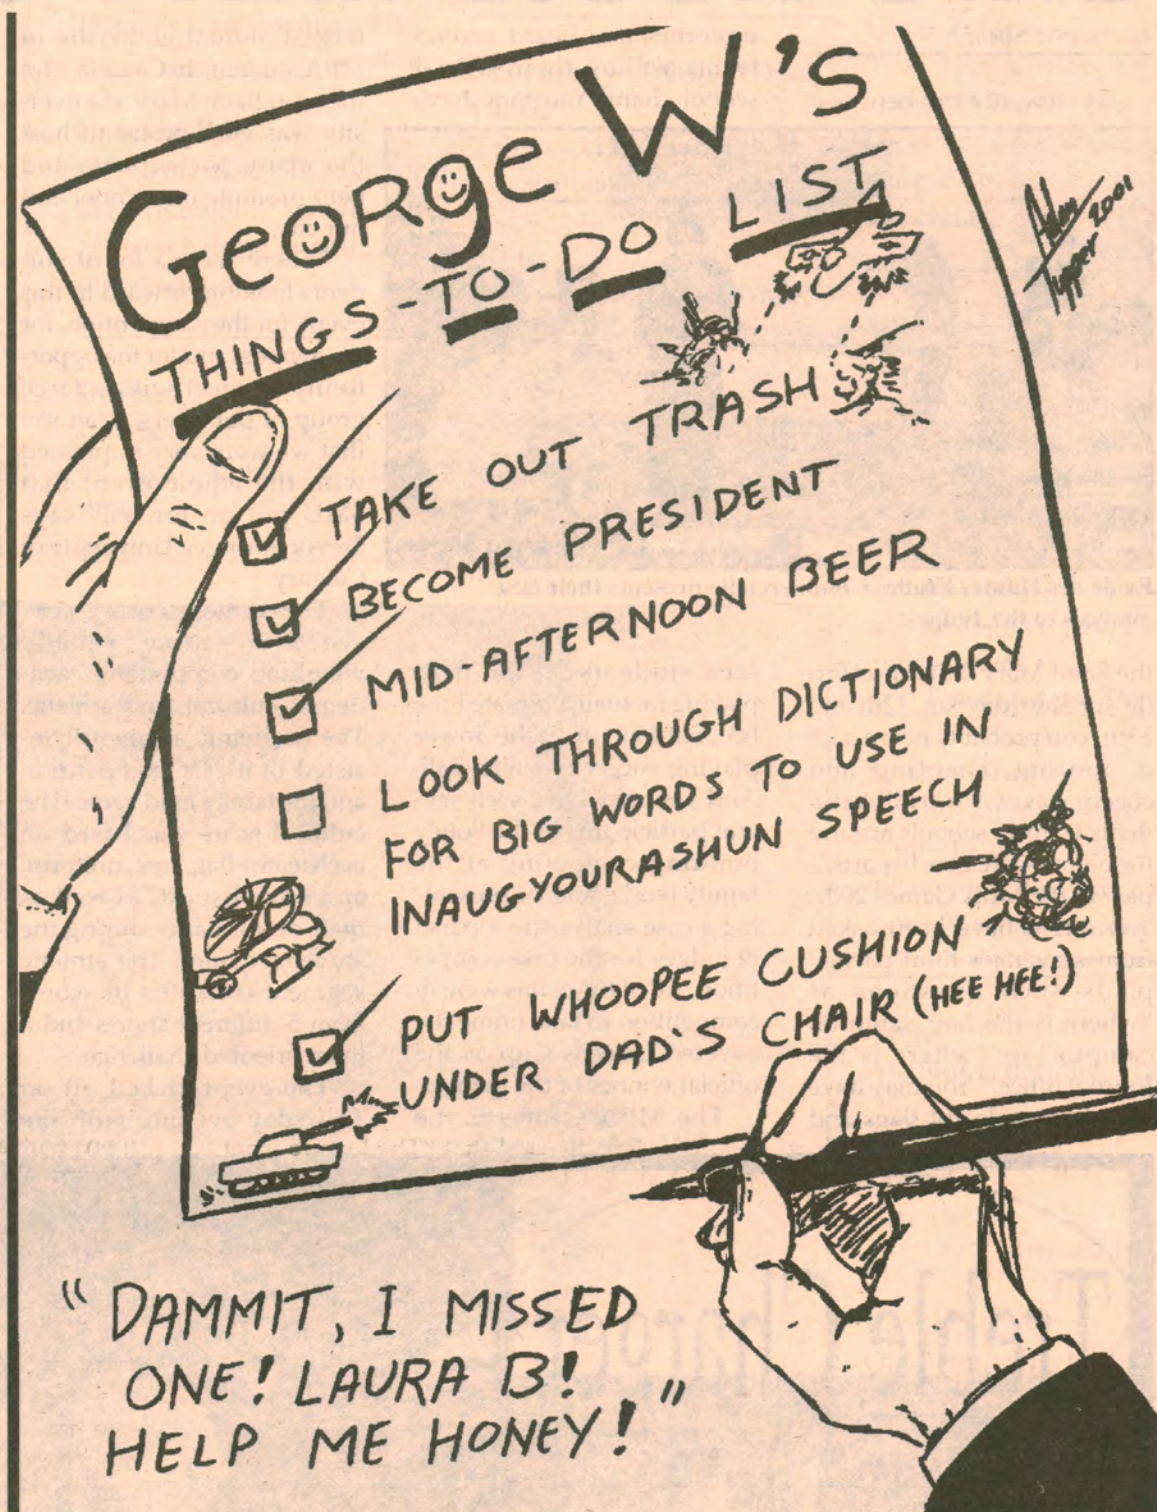 GeoRge W'S
THINGS-TO-DO LIST
TAKE OUT TRASH
BECOME PRESIDENT
MID-AFTERNOON BEER
LOOK THROUGH DICTIONARY
FOR BIG WORDS TO USE IN
INAUGYOURASHUN SPEECH
PUT WHOOPEE CUSHION
UNDER DAD'S CHAIR (HEE HEE!)
2001
"DAMMIT, I MISSED
ONE! LAURA B!
HELP ME HONEY!"